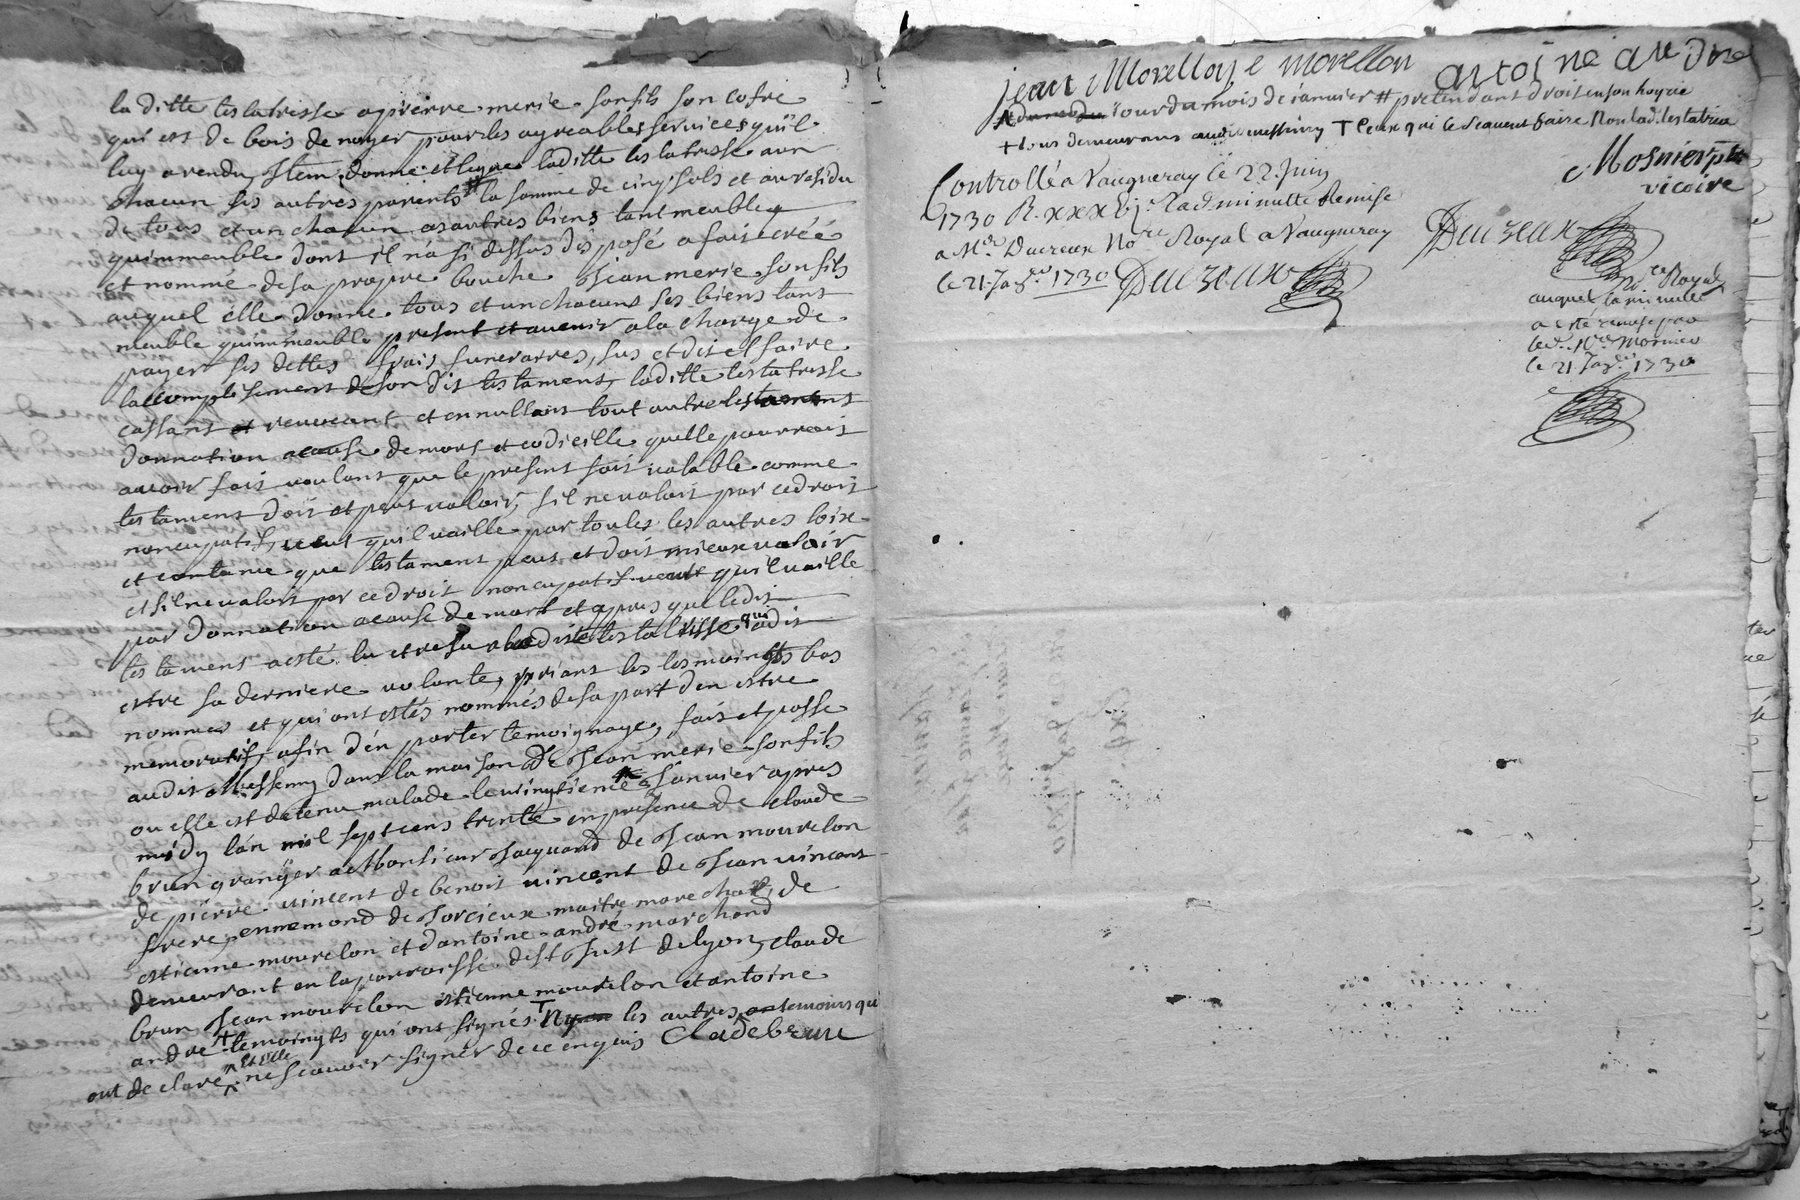 la ditte testatrisse a pierre merie son fils son cofre
qui est de bois de noyer pour les agreables services qu'il
luy a rendu, Item donne et legue laditte testatrisse a un
chacun ses autres parents # la somme de cinq sols et au residu
de tous et un chacun ses autres biens tant meuble
qu'immeuble dont il n'a si dessus disposé a fait créé
et nommé de sa propre bouche Jean merie son fils
auquel elle donne tous et un chacuns ses biens tant
meuble quimmeuble present et avenir a la charge de
payer ses dettes frais funerarres, sus et dit et faire
laccomplissement de son dit testament, laditte testatrisse
cassant et revocant et annullant tout autre testament
donnation a cause de mort et codicille quelle pourroit
avoir fait voulant que le present soit valable comme
testament doit et peut valoir, sil ne valoit par ce droit
noncupatif, veut quil vaille par toutes les autres loix
et coutume que testament peut et doit mieux valoir
et sil ne valoit par ce droit noncupatif veut quil vaille
par donnation a cause de mort et apres que ledit
testament a esté lu et relu a laditte testatrisse qui a dit
estre sa derniere volonte, priant les tesmoingts bas
nommes et qui ont estés nommés de sa part den estre
memoratif, afin d'en porter temoignage, fait et passe
audit Messenny dans la maison de Jean merie son fils
ou elle est detenu malade le vingtieme Janvier apres
midy l'an mil sept cens trente en presence de claude
brun granger de Monsieur Jacquand de Jean mourelon
de pierre vincent de benoit vincent de Jean vincent
frere, ennemond de Jorcieux maitre marechal, de
estienne mourelon et d'antoine andré marchand
demeurant en la parroisse de st Just de lyon, claude
brun Jean mourelon estienne mourelon et antoine
andre + temoingts qui ont signés T les autres temoins qui
ont declare et elle ne scavoir signer de ce enquis Clade brun
jean Morellon e morellon antoine andre
jour du mois de janvier # pretendant droit en son hoyrie
+ tous demeurans audit messinny T ceux qui le scavent faire Non lad. testatrice
Mosnier ptre
vicaire
Controllé a Vaugneray le 22 Juin
1730 R. xxx la d. minutte Remise
a Me. Ducreux Nore Royal a Vaugneray
le 21 1730 Ducreux
Ducreux
Nre Royal
auquel la minutte
a esté remise par
led. Mosnier
le 21 1730